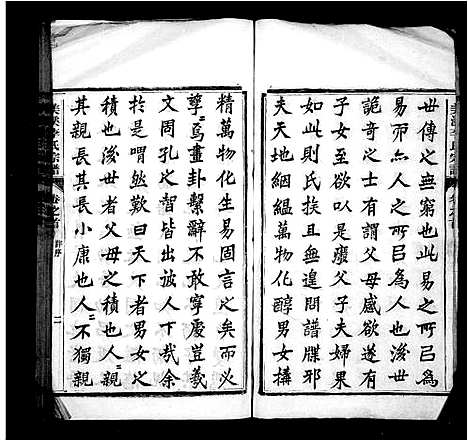 世傳之無窮也此易之所㠯爲
易而人之所㠯爲人也後世
詭奇之士有謂父母感欲遂有
子女至欲以是廢父子夫婦果
若此則氏族且無遑問譜牒邪
夫天地絪縕萬物化醇男女搆
精萬物化生易固言之矣而必
孳焉畫卦繫辭不敢寧處豈羲
文周孔之智皆出誠天下哉余
於是喟然歎曰天下者男女之
積也後世者父母之積也人人親
其親長其長小康也人人不獨親
李氏宗譜
卷之首
序
二